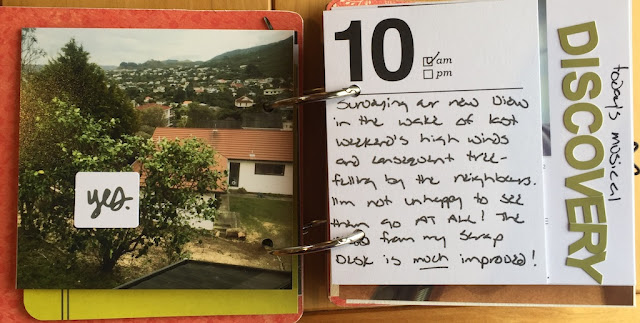 yes.
10
am
pm
Surveying our new view
in the wake of last
weekend's high winds
and consequent tree-
felling by the neighbours.
I'm not unhappy to see
them go AT ALL! The
from my scrap
DESK is much improved!
DISCOVERY
today's musical